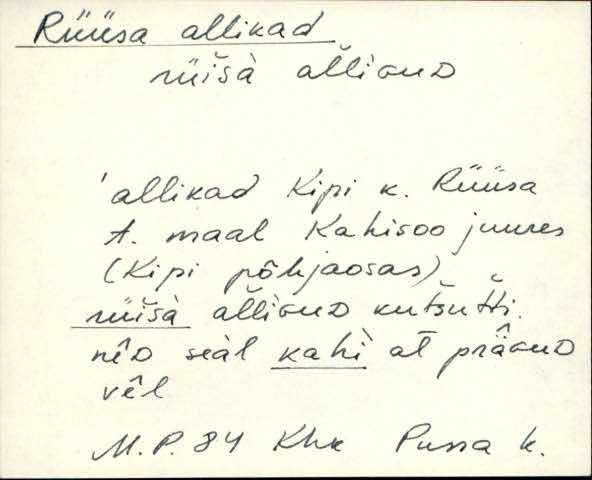 Rüüsa allikad
rüišà alliGuD
'allikad Kipi k. Rüüsa
t. maal Kahisoo juures
(Kipi põhjaosas)
rüišà alliGuD kutšutti.
nêD seàl kahì at präGuD
vêl
M.P. 84 Khk Pussa k.